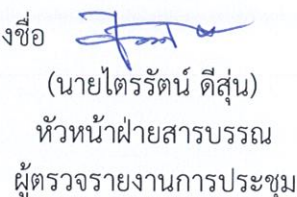 งชื่อ
(นายไตรรัตน์ ดีสุ่น)
หัวหน้าฝ่ายสารบรรณ
ผู้ตรวจรายงานการประชุม